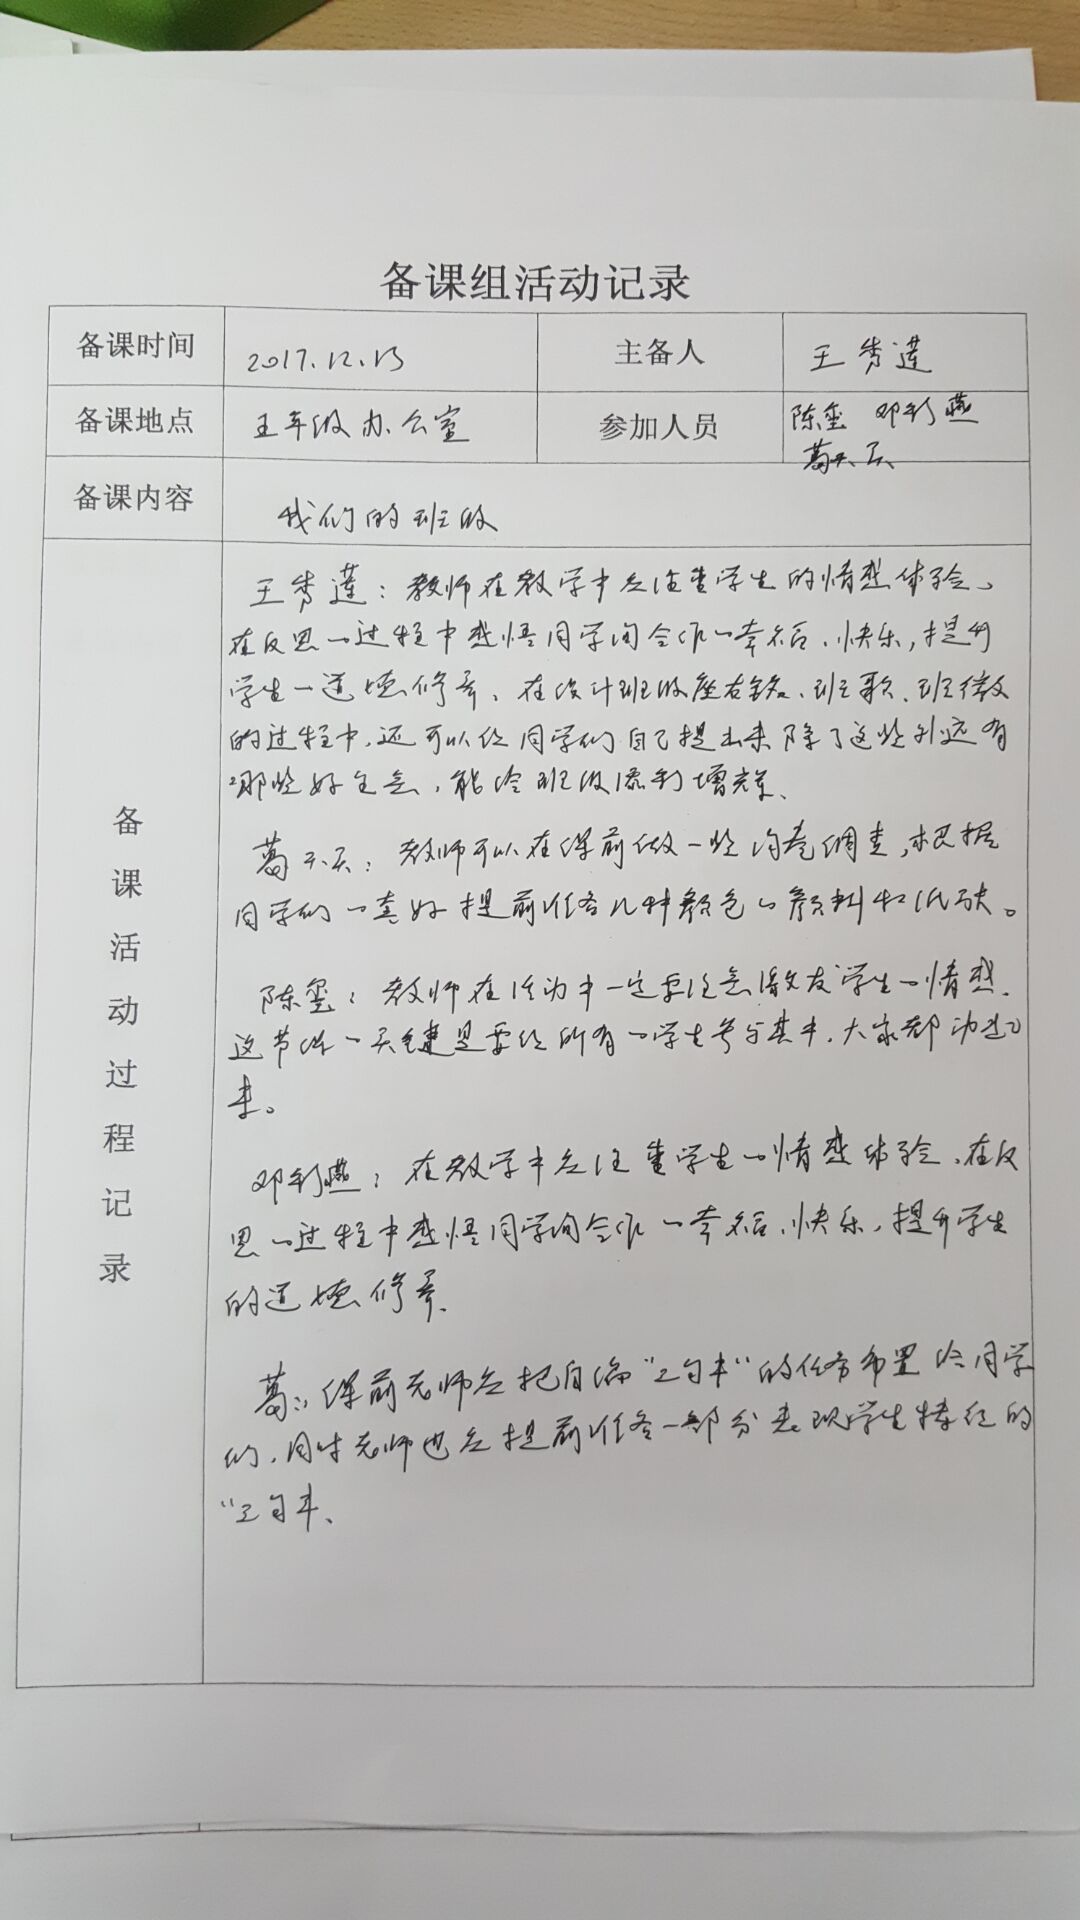 备课组活动记录
备课时间 2017.12.13 主备人 王秀莲
备课地点 五年级办公室 参加人员 陈玺 邓彩燕
葛天天
备课内容 我们的班级
备课活动过程记录
王秀莲：教师在教学中应注重学生的情感体验、
在反思的过程中感悟同学间合作的幸福、快乐，提升
学生的道德修养、在设计班级座右铭、班歌、班徽
的过程中，还可以让同学们自己提出来除了这些外还有
哪些好主意，能给班级添彩增辉、
葛天天：教师可以在课前做一些问卷调查，根据
同学们的喜好提前准备几种颜色的颜料和纸张。
陈玺：教师在活动中一定要注意激发学生的情感、
这节课的关键是要让所有的学生参与其中，大家都动起
来。
邓彩燕：在教学中应注重学生的情感体验、在反
思的过程中感悟同学间合作的幸福、快乐，提升学生
的道德修养、
葛：课前老师应把自编“三句半”的任务布置给同学
们，同时老师也应提前准备一部分表现学生特征的
“三句半、